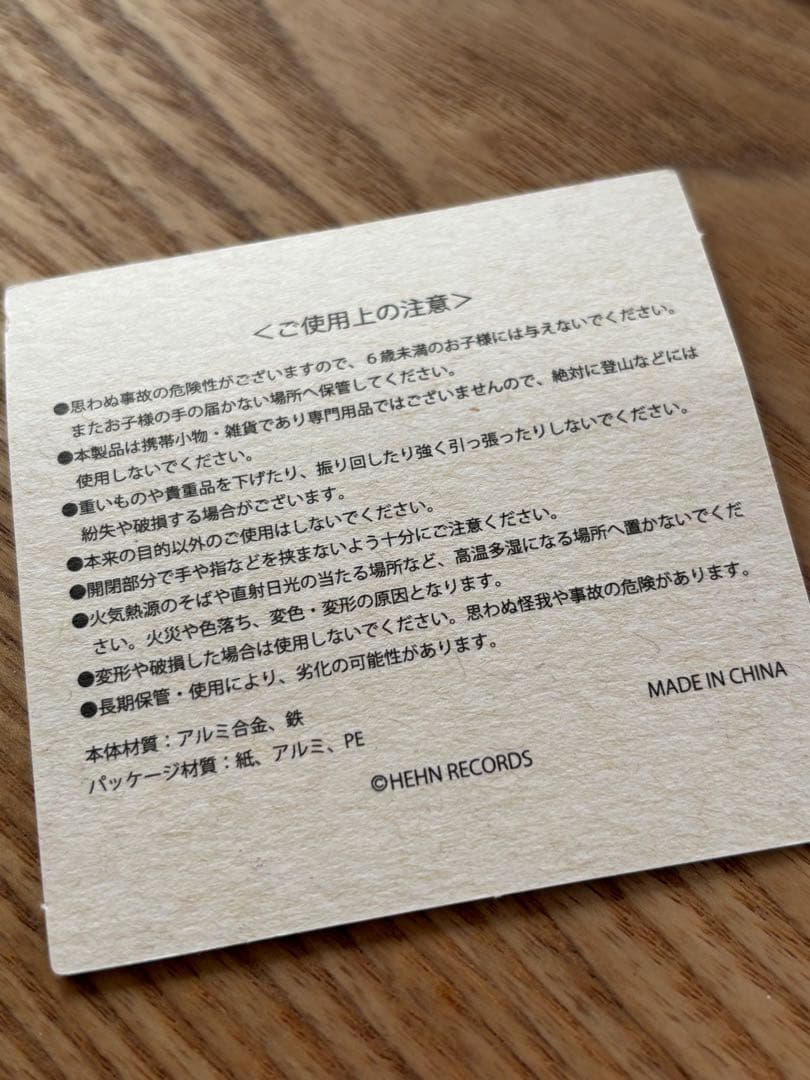 ＜ご使用上の注意＞
●思わぬ事故の危険性がございますので、６歳未満のお子様には与えないでください。
またお子様の手の届かない場所へ保管してください。
●本製品は携帯小物・雑貨であり専門用品ではございませんので、絶対に登山などには
使用しないでください。
●重いものや貴重品を下げたり、振り回したり強く引っ張ったりしないでください。
紛失や破損する場合がございます。
●本来の目的以外のご使用はしないでください。
●開閉部分で手や指などを挟まないよう十分にご注意ください。
●火気熱源のそばや直射日光の当たる場所など、高温多湿になる場所へ置かないでくだ
さい。火災や色落ち、変色・変形の原因となります。
●変形や破損した場合は使用しないでください。思わぬ怪我や事故の危険があります。
●長期保管・使用により、劣化の可能性があります。
本体材質：アルミ合金、鉄
パッケージ材質：紙、アルミ、PE
MADE IN CHINA
©HEHN RECORDS